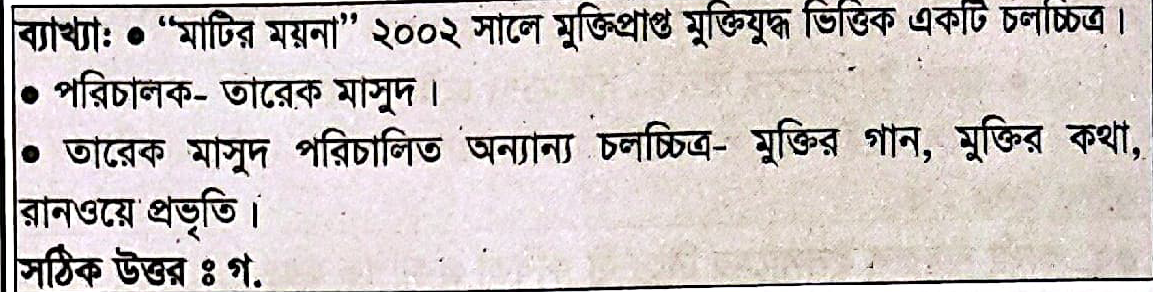 ব্যাখ্যা: ● “মাটির ময়না” ২০০২ সালে মুক্তিপ্রাপ্ত মুক্তিযুদ্ধ ভিত্তিক একটি চলচ্চিত্র।
● পরিচালক- তারেক মাসুদ।
● তারেক মাসুদ পরিচালিত অন্যান্য চলচ্চিত্র- মুক্তির গান, মুক্তির কথা,
রানওয়ে প্রভৃতি।
সঠিক উত্তর ঃ গ.